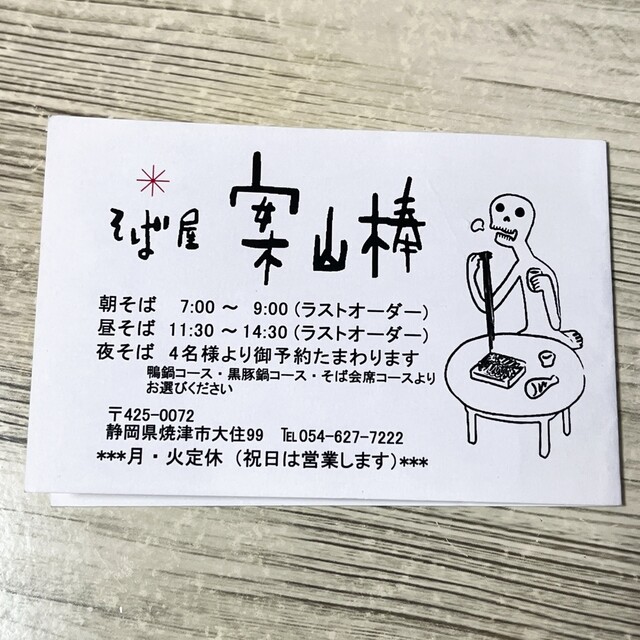 そば屋 案山棒
朝そば 7:00 ～ 9:00 (ラストオーダー)
昼そば 11:30 ～ 14:30 (ラストオーダー)
夜そば 4名様より御予約たまわります
鴨鍋コース・黒豚鍋コース・そば会席コースより
お選びください
〒425-0072
静岡県焼津市大住99 ℡054-627-7222
***月・火定休 (祝日は営業します)***